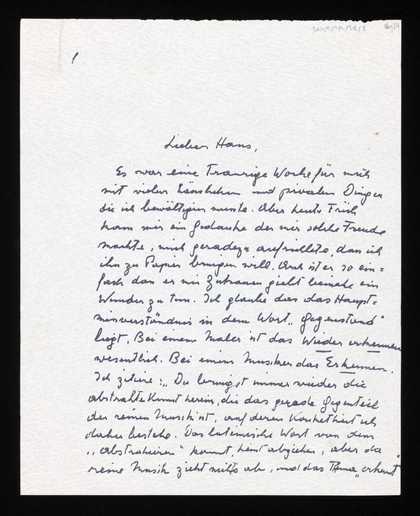 Lieber Hans,
Es war eine traurige Woche für mich
mit vielen und privaten Dingen
die ich bewältigen musste. Aber heute Früh
kam mir ein Gedanke der mir solche Freude
machte, mich geradezu aufrüttelte, dass ich
ihn zu Papier bringen will. Auch ist er so ein=
fach dass er mir Zutrauen giebt beinahe ein
Wunder zu tun. Ich glaube dass das Haupt=
missverständnis in dem Wort „Gegenstand"
liegt. Bei einem Maler ist das Wieder erkennen
wesentlich. Bei einem Musiker das Erkennen.
Ich zitiere: „Du bringst immer wieder die
abstrakte Kunst herein, die das gerade Gegenteil
der reinen Musik ist, auf deren Konkretheit ich
daher bestehe. Das lateinische Wort von dem
„abstrahieren" kommt, heisst abziehen, aber da
reine Musik zieht nichts ab, und das Thema „erkennt"